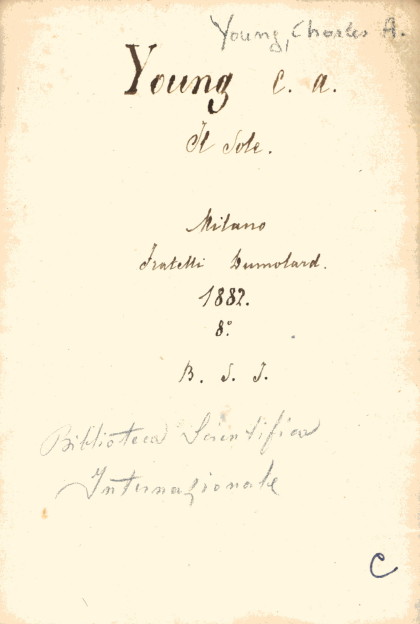 Young, Charles A.
Young C. A.
Il Sole.
Milano
Fratelli Dumolard.
1882.
8º
B. S. I.
Biblioteca Scientifica
Internazionale
C